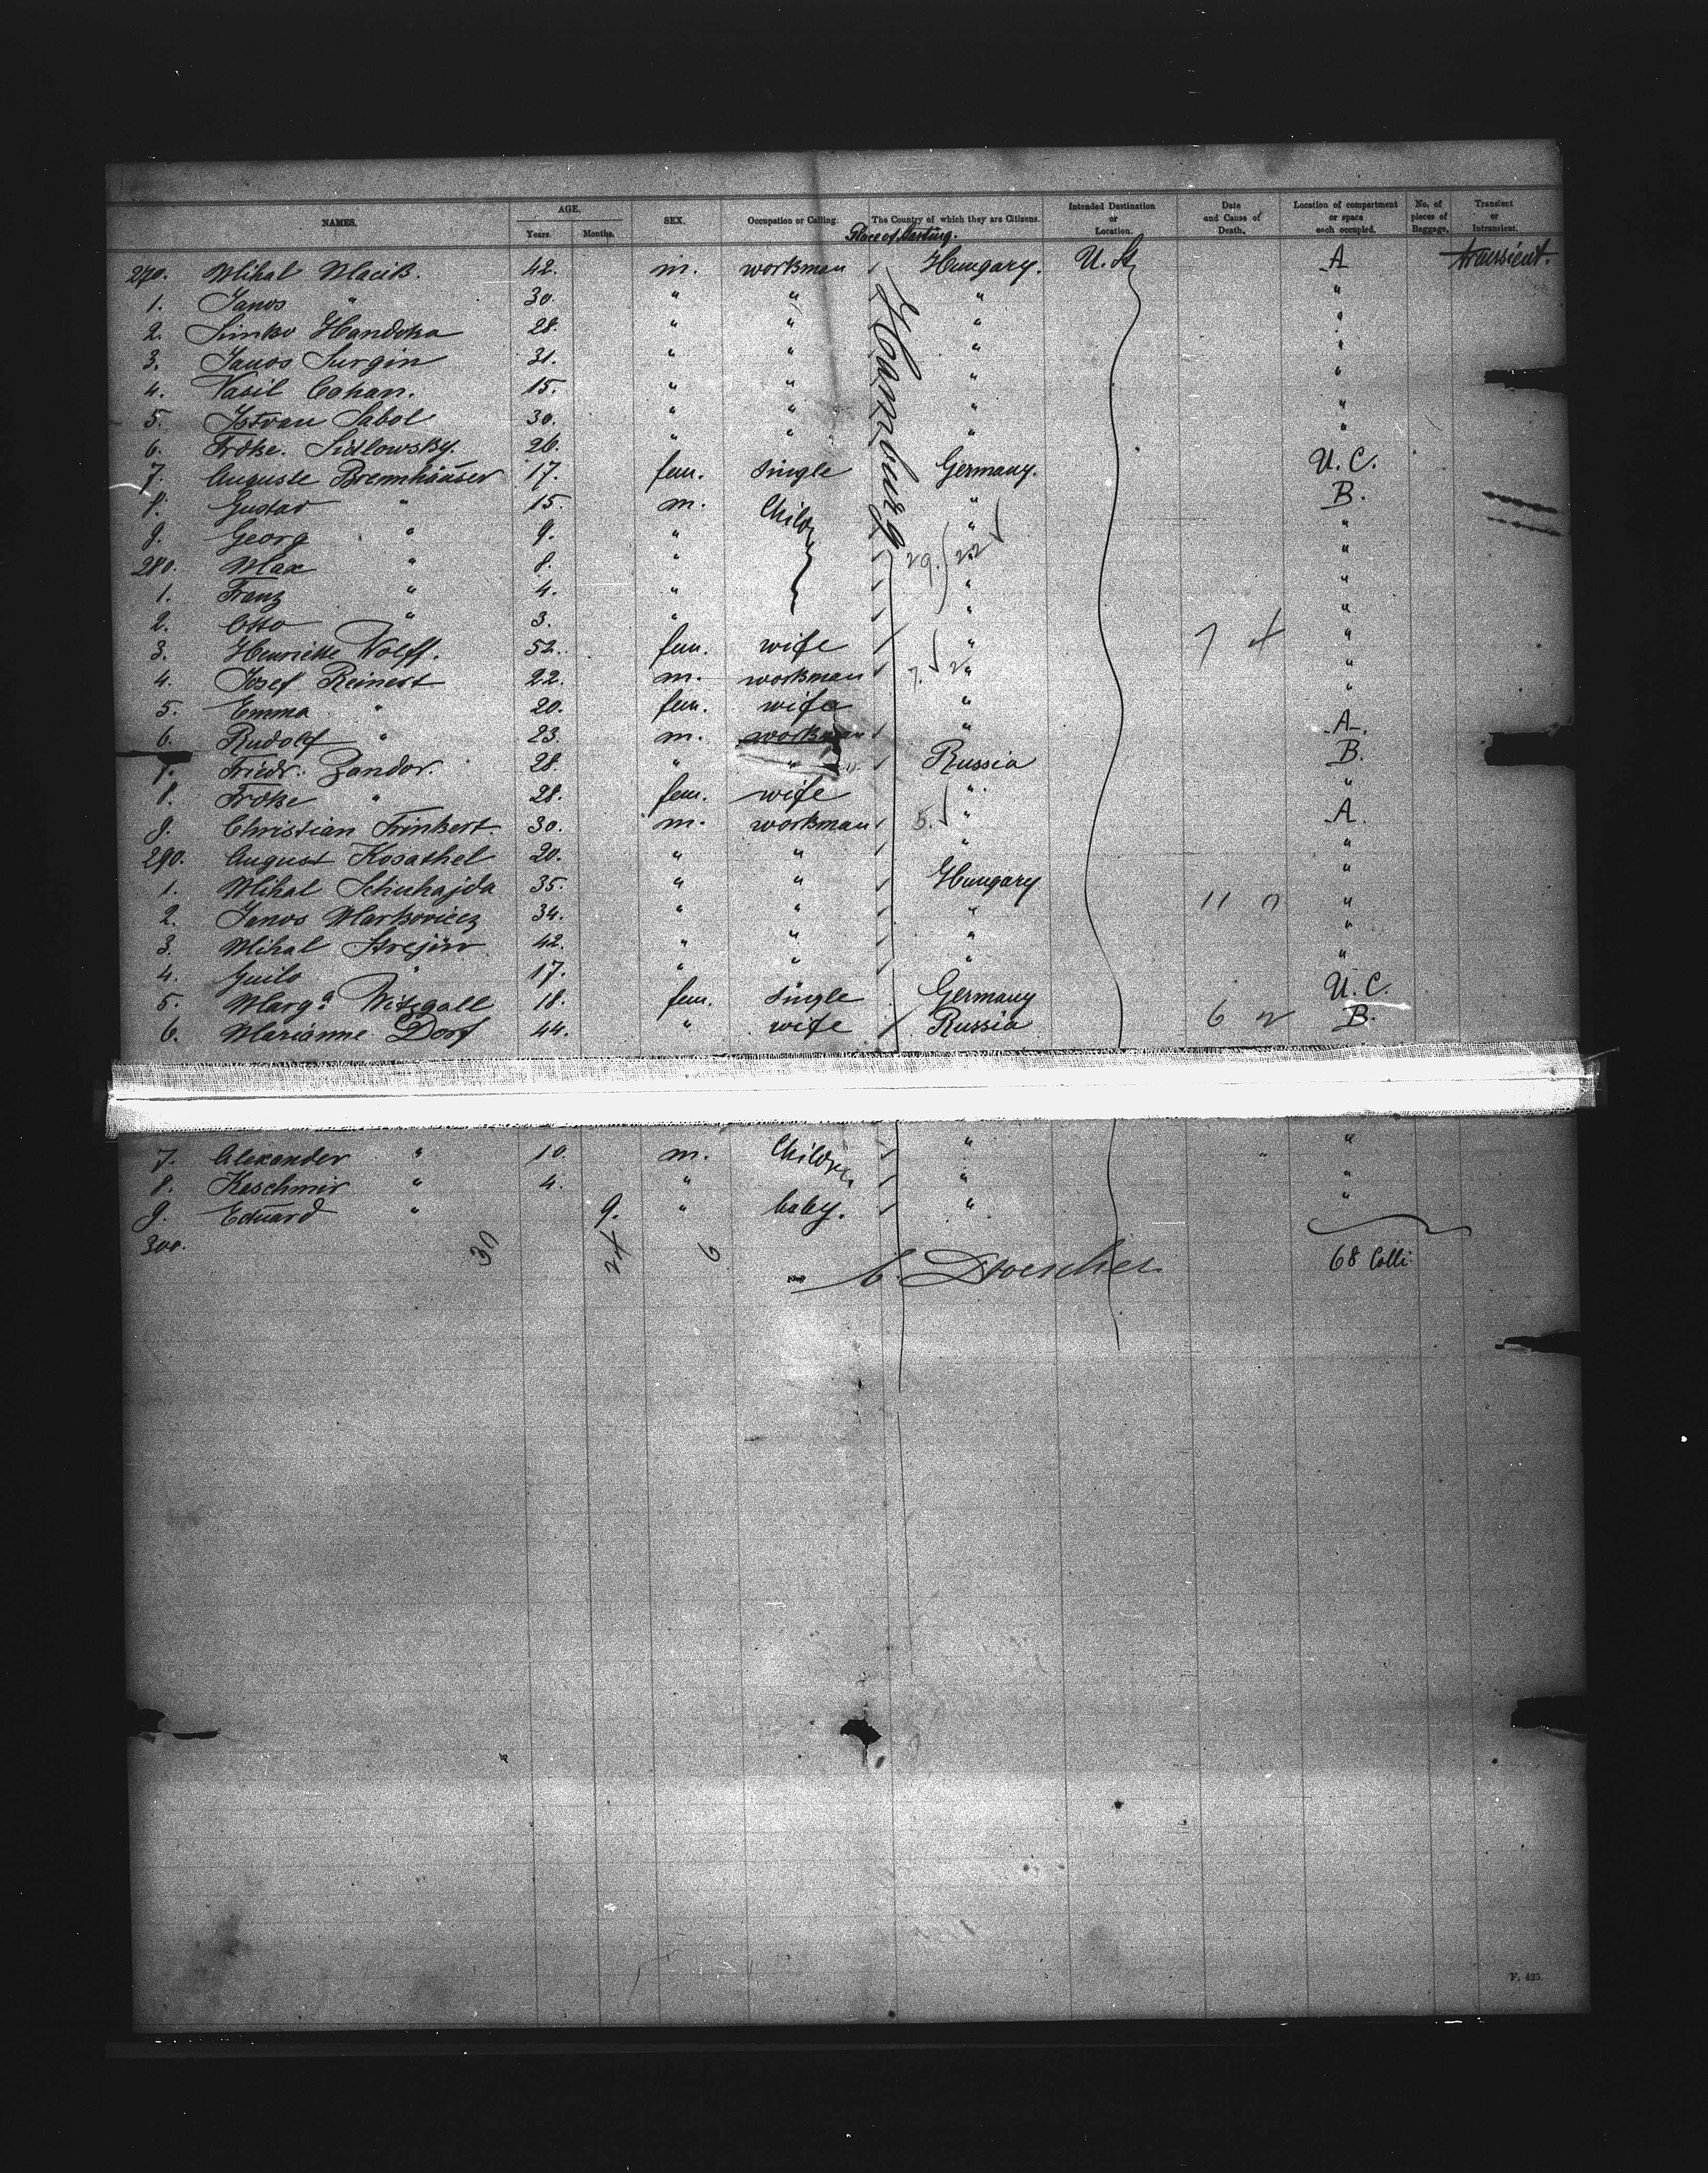 NAMES. AGE. Years. Months. SEX. Occupation or Calling. The Country of which they are Citizens. Intended Destination or Location. Date and Cause of Death. Location of compartment or space each occupied. No. of pieces of Baggage. Transient or Intransient.
Place of Starting.
270. Mihal Macik. 42. m. workman Hungary. U. St. A transient.
1. Janos " 30. " " " "
2. Simko Handoka 28. " " " "
3. Janos Surgin 31. " " " "
4. Vasil Cohan. 15. " " " "
5. Istvan Sabol 30. " " " "
6. Frdke. Sidlowsky. 26. " " " "
Hamburg
7. Auguste Brennhäuser 17. fem. single Germany. U. C.
8. Gustav " 15. m. Childr " B.
9. Georg " 9. " " "
280. Max " 8. " " "
1. Franz " 4. " " "
2. Otto " 3. " " "
3. Henriette Wolff. 52. fem. wife " "
4. Josef Reinert 22. m. workman " "
5. Emma " 20. fem. wife " "
6. Rudolf " 23. m. workman " A.
7. Friedr. Zandor. 28. " " Russia B.
8. Frdke " 28. fem. wife " "
9. Christian Frinkert 30. m. workman " A.
290. August Kosathel 20. " " " "
1. Mihal Schuhajda 35. " " Hungary "
2. Janos Markovicz 34. " " " 11 "
3. Mihal 42. " " " "
4. " 17. " " " "
5. Marg.a Witzgall 18. fem. single Germany U. C.
6. Marianne Dorf 44. " wife Russia 6 2 B.
7. Alexander " 10. m. Childr " "
8. Kaschmir " 4. " " "
9. Eduard " 9. " baby. " "
300. 30 24 6 C. Droescher 68 Colli.
F. 425.